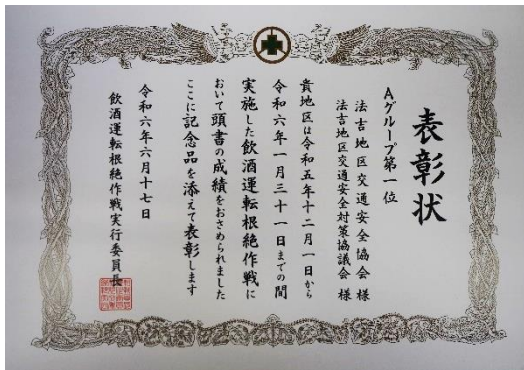 表彰状
Aグループ第一位
法吉地区交通安全協会 様
法吉地区交通安全対策協議会 様
貴地区は令和五年十二月一日から
令和六年一月三十一日までの間
実施した飲酒運転根絶作戦に
おいて頭書の成績をおさめられました
ここに記念品を添えて表彰します
令和六年六月十七日
飲酒運転根絶作戦実行委員長